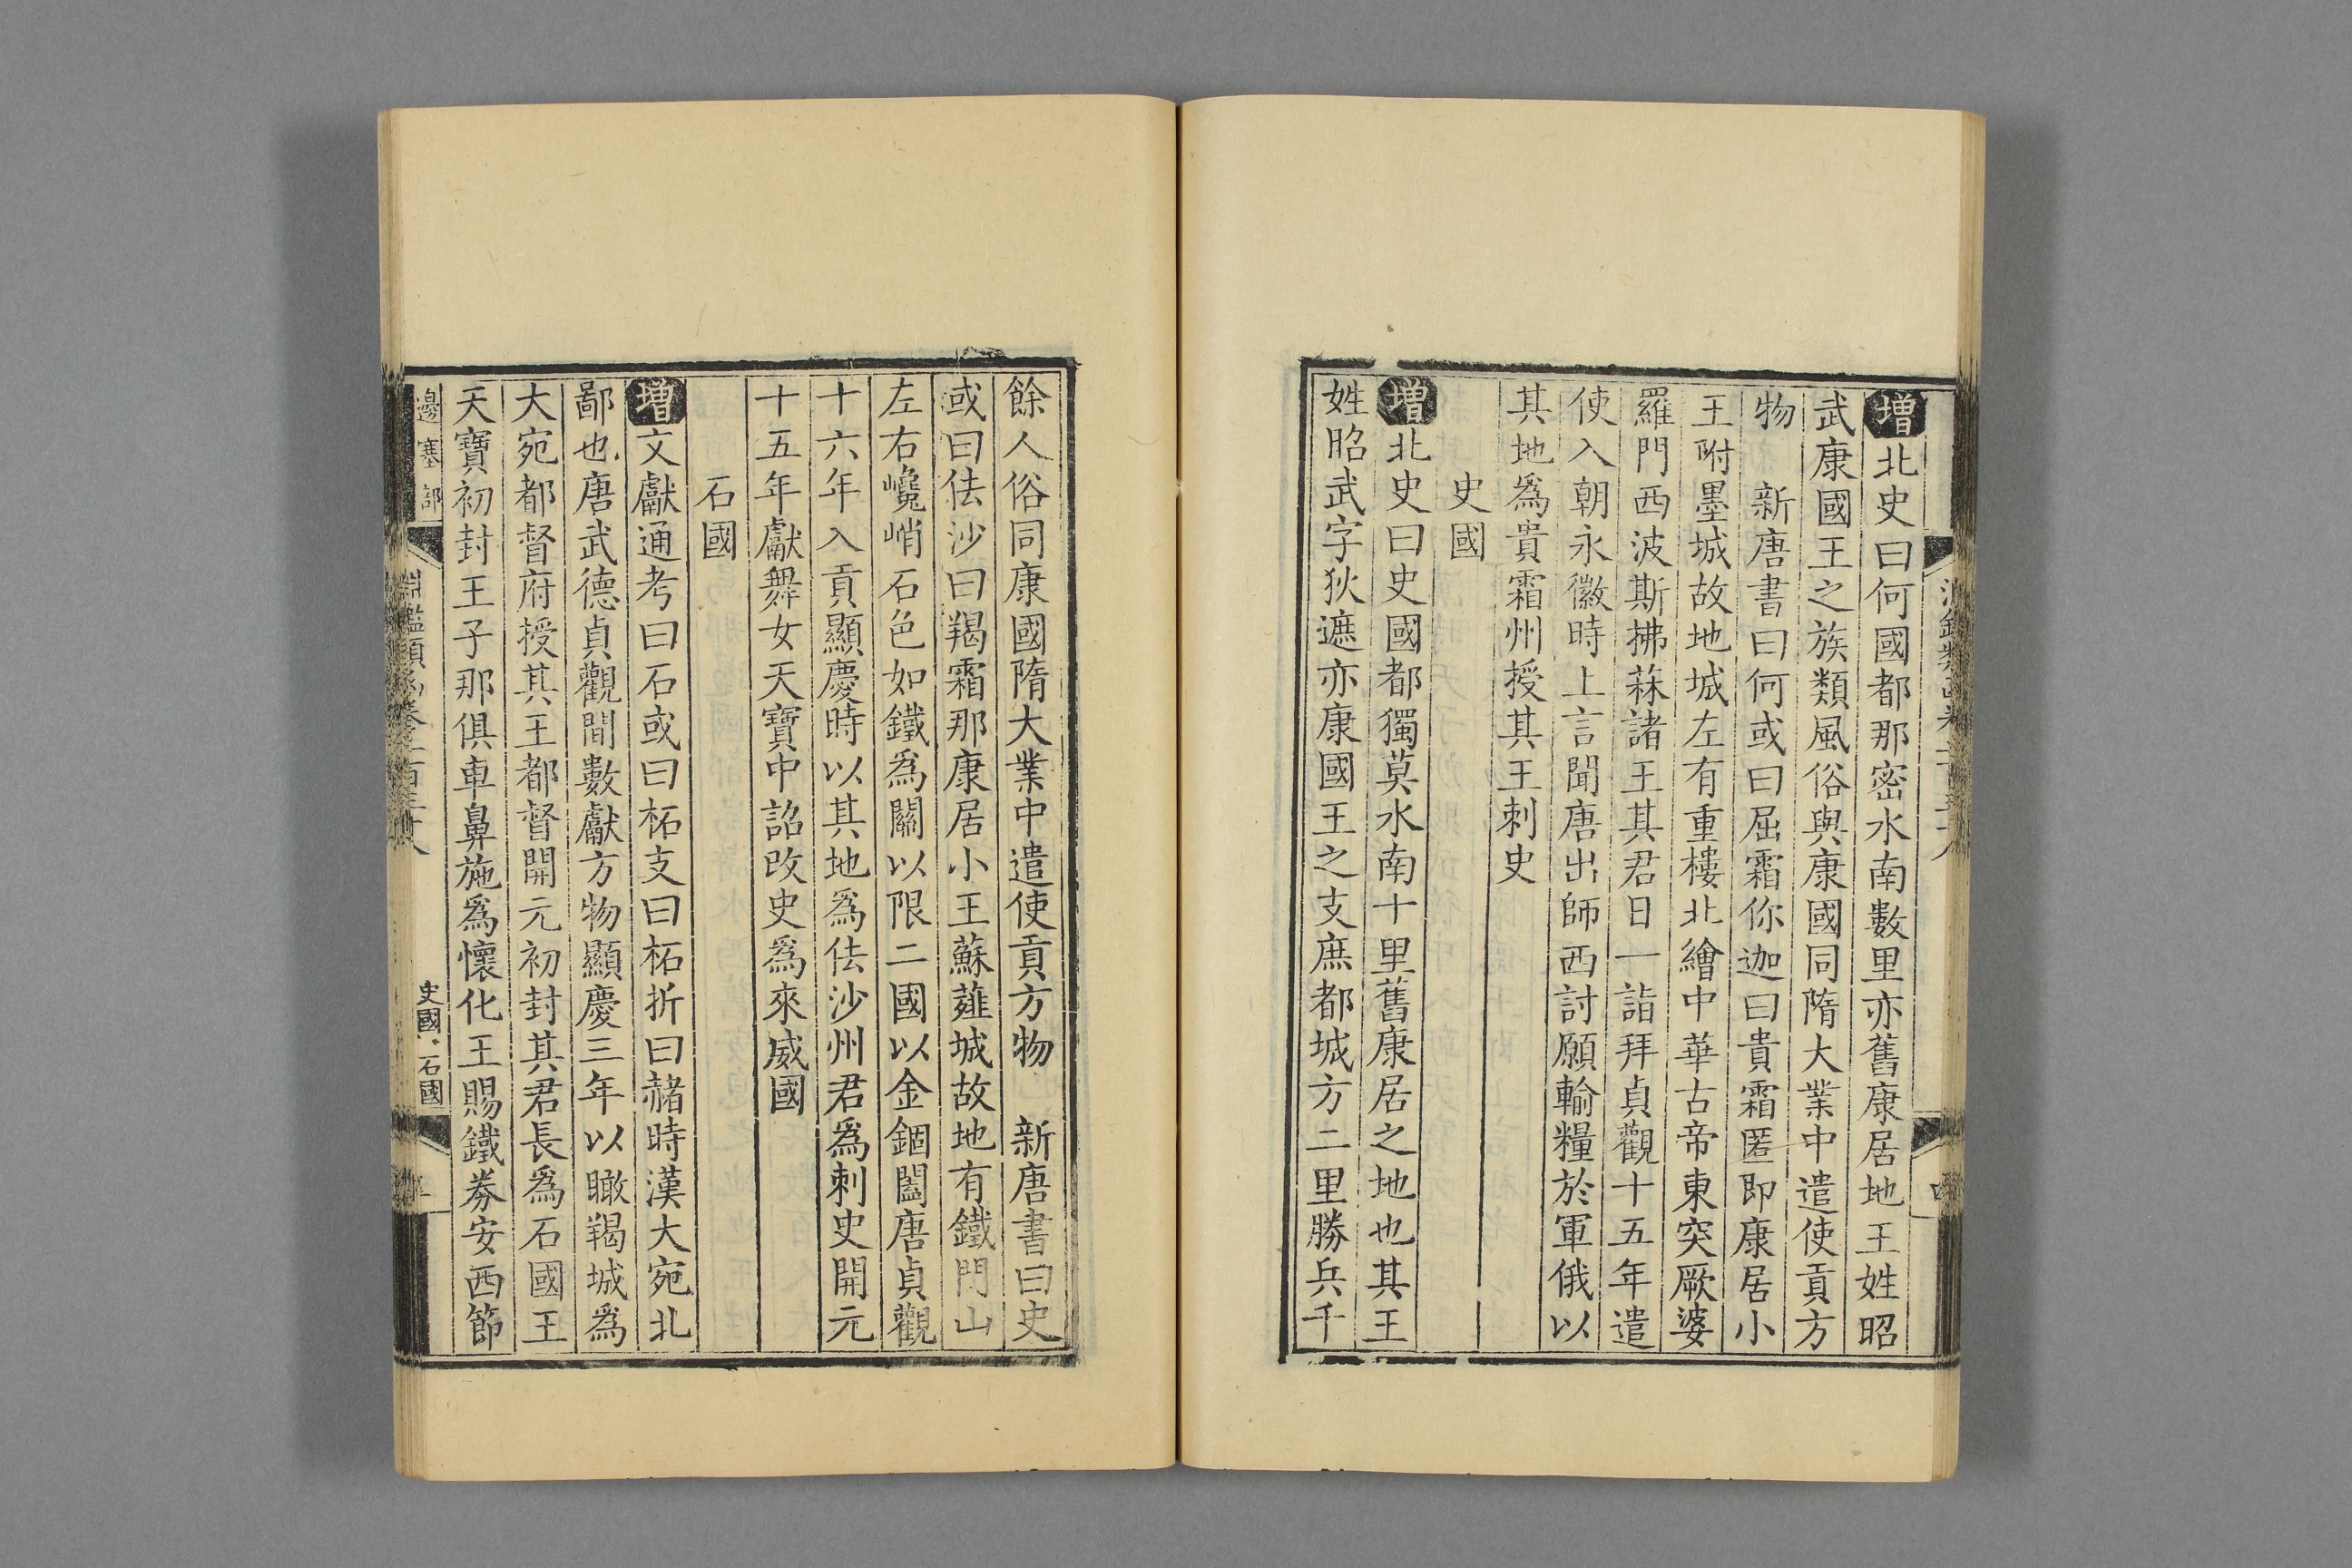 增北史曰何國都那密水南數里亦舊康居地王姓昭
武康國王之族類風俗與康國同隋大業中遣使貢方
物　新唐書曰何或曰屈霜你迦曰貴霜匿即康居小
王附墨城故地城左有重樓北繪中華古帝東突厥婆
羅門西波斯拂菻諸王其君日一詣拜貞觀十五年遣
使入朝永徽時上言聞唐出師西討願輸糧於軍俄以
其地爲貴霜州授其王刺史
史國
增北史曰史國都獨莫水南十里舊康居之地也其王
姓昭武字狄遮亦康國王之支庶都城方二里勝兵千
餘人俗同康國隋大業中遣使貢方物　新唐書曰史
或曰佉沙曰羯霜那康居小王蘇薤城故地有鐵門山
左右巉峭石色如鐵爲關以限二國以金錮闔唐貞觀
十六年入貢顯慶時以其地爲佉沙州君爲刺史開元
十五年獻舞女天寶中詔改史爲來威國
石國
增文獻通考曰石或曰柘支曰柘折曰赭時漢大宛北
鄙也唐武德貞觀間數獻方物顯慶三年以瞰羯城爲
大宛都督府授其王都督開元初封其君長爲石國王
天寶初封王子那俱車鼻施爲懷化王賜鐵券安西節
邊塞部
淵鑑類函卷二百三十八
史國 石國